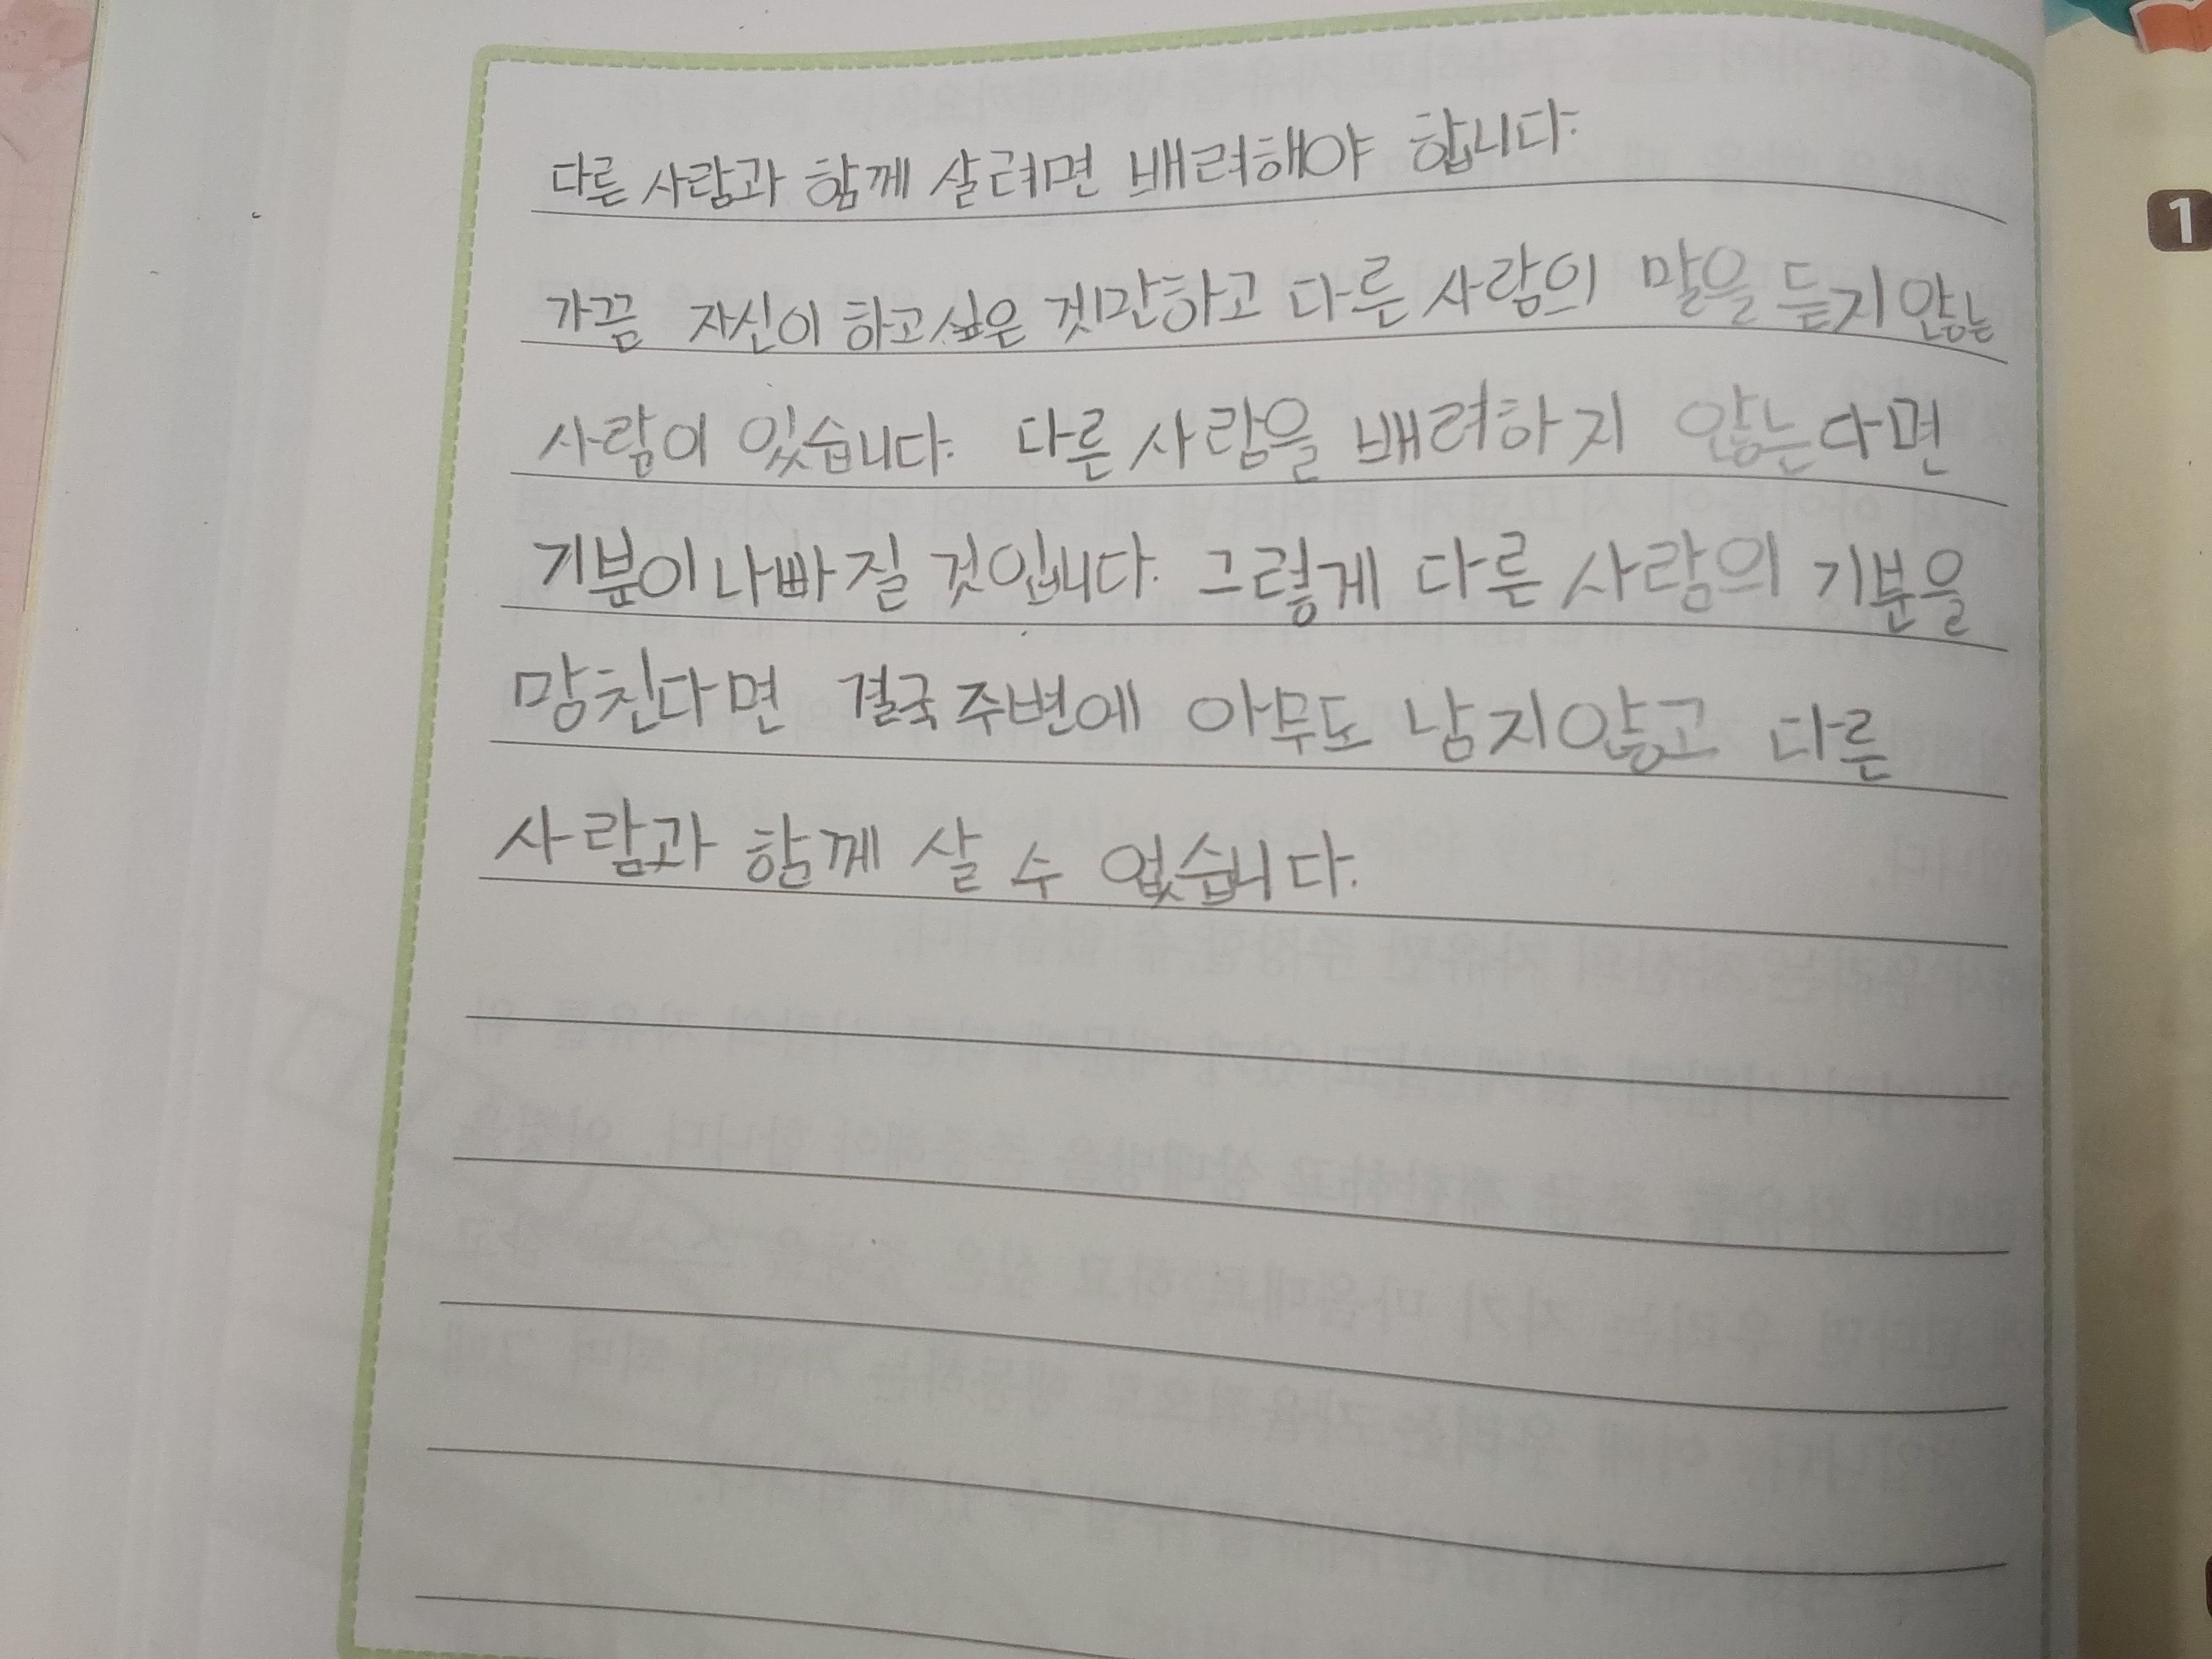 다른 사람과 함께 살려면 배려해야 합니다.
1
가끔 자신이 하고싶은 것만하고 다른 사람의 말을 듣지 않는
사람이 있습니다. 다른 사람을 배려하지 않는다면
기분이 나빠질 것입니다. 그렇게 다른 사람의 기분을
망친다면 결국 주변에 아무도 남지않고 다른
사람과 함께 살 수 없습니다.